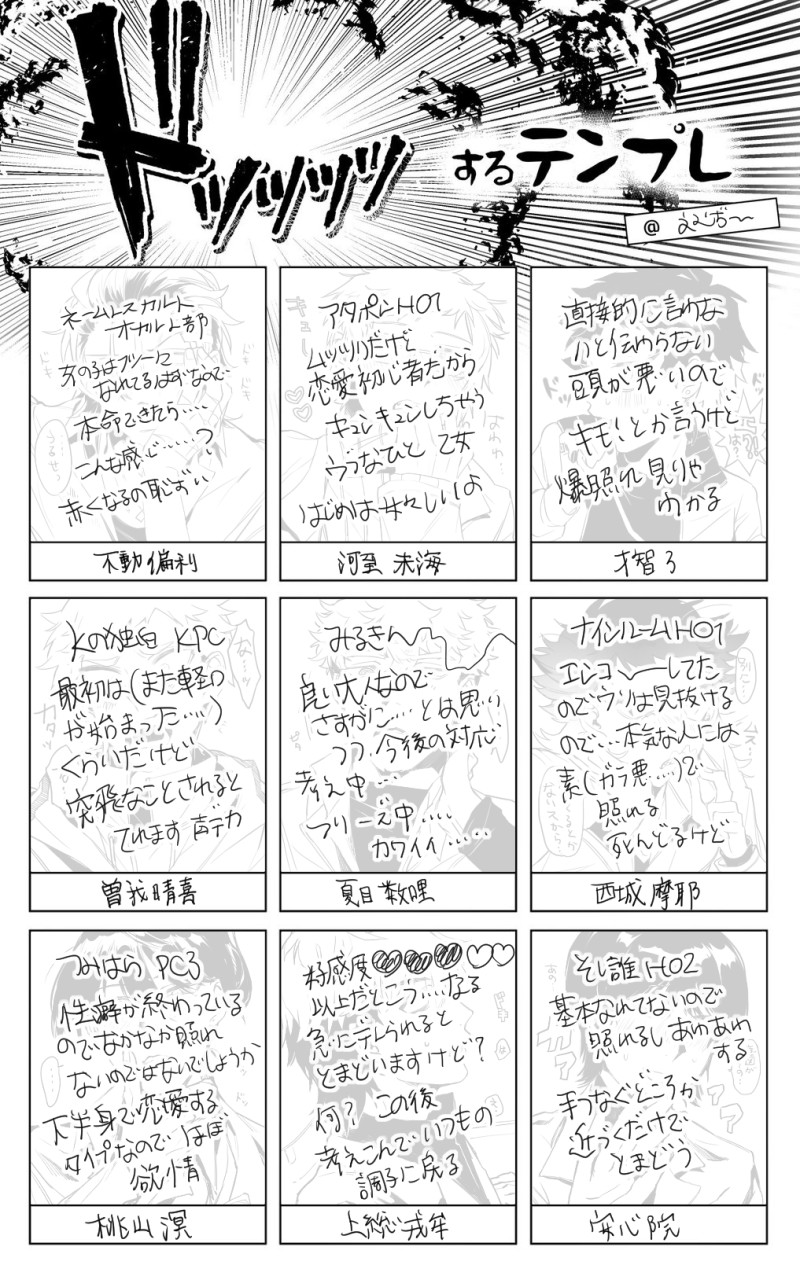 ドッッッッ するテンプレ
@
ネームレスカルト
オカルト部
女の子はフツーに
なれてるはずなので…
本命できたら……
こんな感じ……?
赤くなるの恥ずい
うるせっ
ドキ
ドキ
不動 偏利
アタポンHO1
ムッツリだけど
恋愛初心者だから
キュンキュンしちゃう
ウブなひと 乙女
はじめは
よ
キュー
河至 未海
直接的に言わな
いと伝わらない
頭が悪いので
キモ!とか言うけど
爆照れ 見りゃ
わかる
ドッ
は?
才智 了
Kの独白 KPC
最初は(また軽口
が始まった……)
くらいだけど
突飛なことされると
てれます 声デカ
カタッ
曽我 晴喜
みるきん
良い大人なので
さすがに…とは思い
つつ 今後の対応
考え中…
フリーズ中……
カワイイ……
夏目 数哩
ナインルームHO1
エンコーしてた
のでウソは見抜ける
ので…本気な人には
素(ガラ悪……)で
照れる
死んどるけど
別に…
西城 摩耶
つみはら PC3
性癖が終わっている
のでなかなか照れ
ないのではないでしょうか
下半身で恋愛する
タイプなので ほぼ
欲情
桃山 溟
好感度♥♥♥♡♡
以上だとこう…なる
急にデレられると
とまどいますけど?
何? この後
考えこんで いつもの
調子に戻る
上総 戎牟
そし誰 HO2
基本なれてないので
照れるし あわあわ
する
手つなぐどころか
近づくだけで
とまどう
安心院